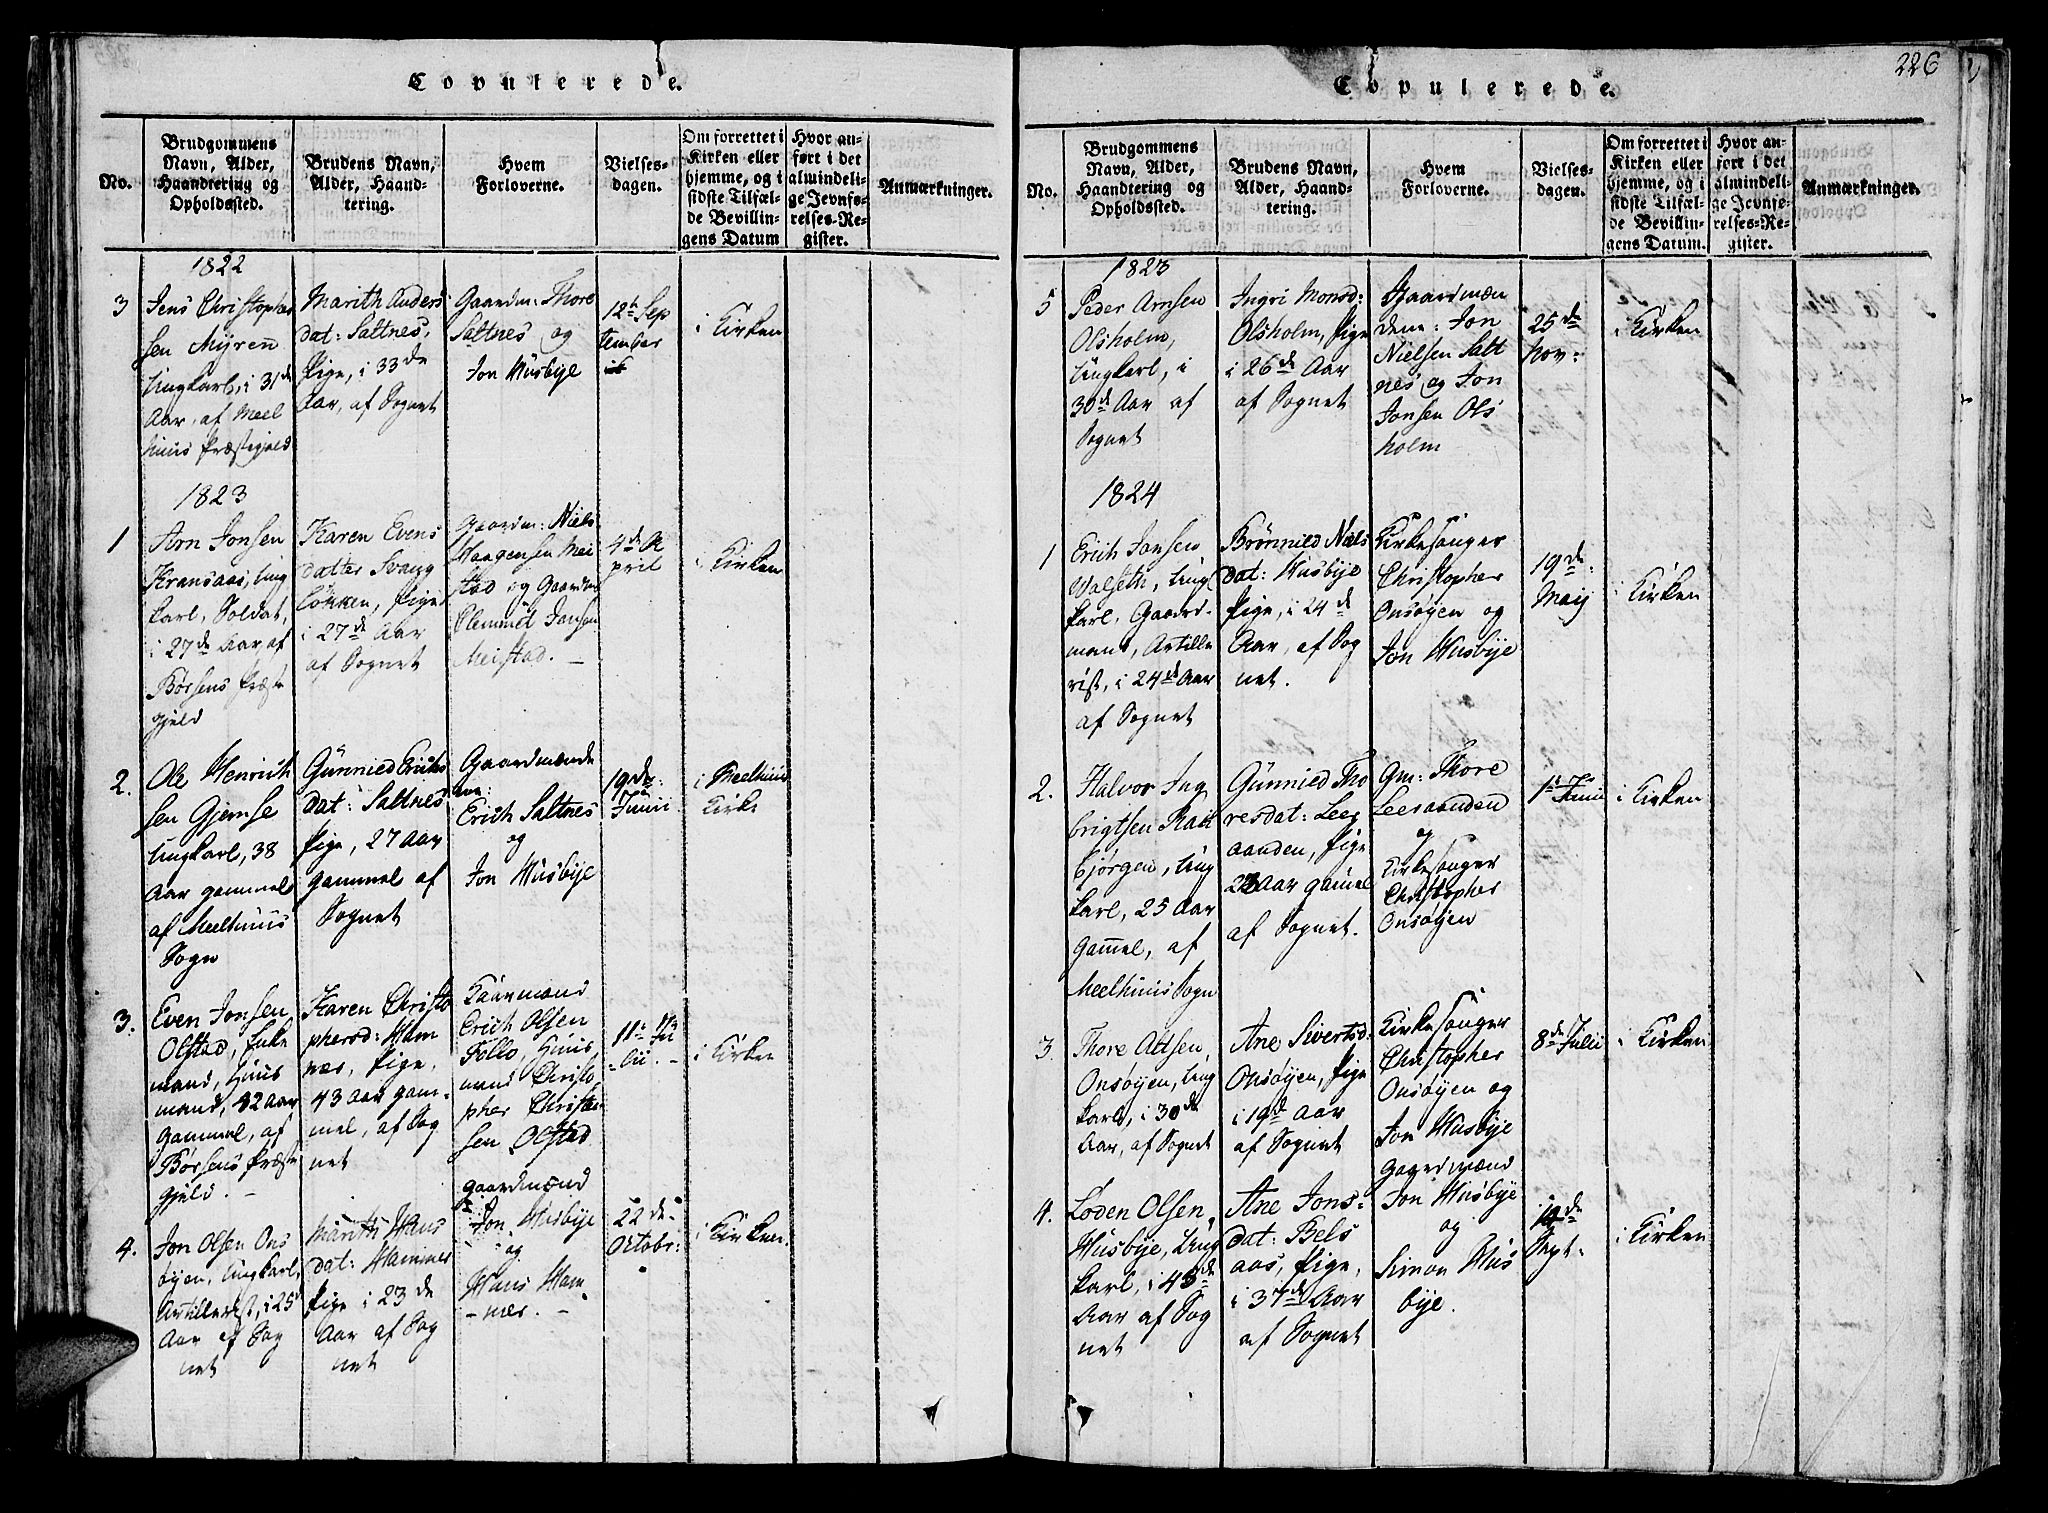 Copulerede.
No.
Brudgommens
Navn, Alder,
Haandtering og
Opholdssted.
Brudens Navn,
Alder, Haand-
tering.
Hvem
Forloverne.
Vielses-
dagen.
Om forrettet i
Kirken eller
hjemme, og i
sidste Tilfæl-
de Bevillin-
gens Datum
Hvor an-
ført i det
almindeli-
ge Jevnfø-
relses-Re-
gister.
Anmærkninger.
1822
3
Jens Christopher
sen Myren
Ungkarl, i 31 de
Aar, af Meel
huus Præstegjeld
Marith Anders
dat: Saltnes,
Pige, i 33 de
Aar, af Sognet
Gaardm: Thore
Saltnes og
Jon Husbye
12te Sep
tember
i Kirken
1823
1
Arn Jonsen
Kransaas, Ung
karl, Soldat,
i 27 de Aar af
Børsens Præste
gjeld
Karen Evens
datter Svang
løkken, Pige
i 27 de Aar
af Sognet
Gaardm: Niels
Haagensen Mei
stad og Gaardm
Clemmet Jonsen
Meistad. -
4 de A
pril
i Kirken
2.
Ole Henrich
sen Gjemse
Ungkarl, 38
Aar gammel
af Meelhuus
Sogn
Gunnied Erichs
dat: Saltnes
Pige, 27 Aar
gammel af
Sognet
Gaardmænde
ne:
Erich Saltnes
og
Jon Husbye
19 de
Junii
i Meelhuus
Kirke
3.
Even Jonsen
Olstad, Enke
mand, Huus
mand, 42 Aar
gammel, af
Børsens Præste
gjeld. -
Karen Christo
phersd: Ham
nær, Pige,
43 Aar gam-
mel, af Sog
net
Erich Olsen
Follo, Huus
mand Christo
pher Christen
sen Olstad
11te Ju
lii. -
i Kirken
4.
Jon Olsen Ons
øyen, Ungkarl,
Artillerist, i 25 d
Aar af Sog
net
Marith Hans
dat: Hammer
Pige i 23 de
Aar af Sog
net
Gaardmænd
Jon Husbye
og
Hans Ham
- nær. -
22 de
Octobr:
i Kirken.
226
Copulerede.
No.
Brudgommens
Navn, Alder,
Haandtering og
Opholdssted.
Brudens Navn,
Alder, Haand-
tering.
Hvem
Forloverne.
Vielses-
dagen.
Om forrettet i
Kirken eller
hjemme, og i
sidste Tilfæl-
de Bevillin-
gens Datum.
Hvor an-
ført i det
almindeli-
ge Jevnfø-
relses-Re-
gister.
Anmærkninger.
1823
5
Peder Arnsen
Olsholm,
Ungkarl, i
30 de Aar af
Sognet
Ingri Monsd:
Olsholm, Pige
i 26 de Aar
af Sognet
Gaardmæn
dene: Jon
Nielsen Salt
nes og Jon
Jonsen Ols
holm
25 de
Nov:
i Kirken
1824
1
Erich Jonsen
Walseth, Ung
karl, Gaard-
mand, Artille
rist, i 24 de Aar
af Sognet
Brønnied Niels
dat: Husbye
Pige, i 24 de
Aar, af Sog
net.
Kirkesanger
Christopher
Onsøyen og
Jon Husbye
19 de
Maij
i Kirken
2.
Halvor Ing
brigtsen Rad
bjørgen, Ung
karl, 25 Aar
gamel, af
Meelhuus Sogn
Gunnied Tho
resdat: Leer
aanden, Pige
Aar gamel
af Sognet.
Gm: Thore
Leeraanden
og
Kirkesanger
Christopher
Onsøyen
1te Junii
i Kirken
3.
Thore
Onsøyen, Ung
karl, i 30 de
Aar, af Sognet
Ane Sivertsd:
Onsøyen, Pige
i 19 de Aar
af Sognet
Kirkesanger
Christopher
Onsøyen og
Jon Husbye
8 de Julii
i Kirken
4.
Loden Olsen,
Husbye, Ung
karl, i 43 de
Aar af Sog
net
Ane Jons-
dat: Bels
aas, Pige,
i 37 de Aar
af Sognet
Gaardmænd
Jon Husbye
og
Simon Hus
bye.
Sept-
i Kirken